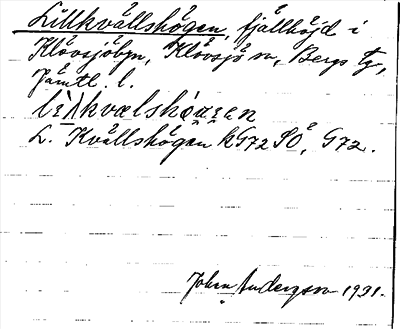 Lillkvällshögen, fjällhöjd i
Klövsjöbyn, Klövsjö sn, Bergs tg,
Jämtl. l.
L. Kvällshögen kG72 SO, G72.
John Anderson 1931.